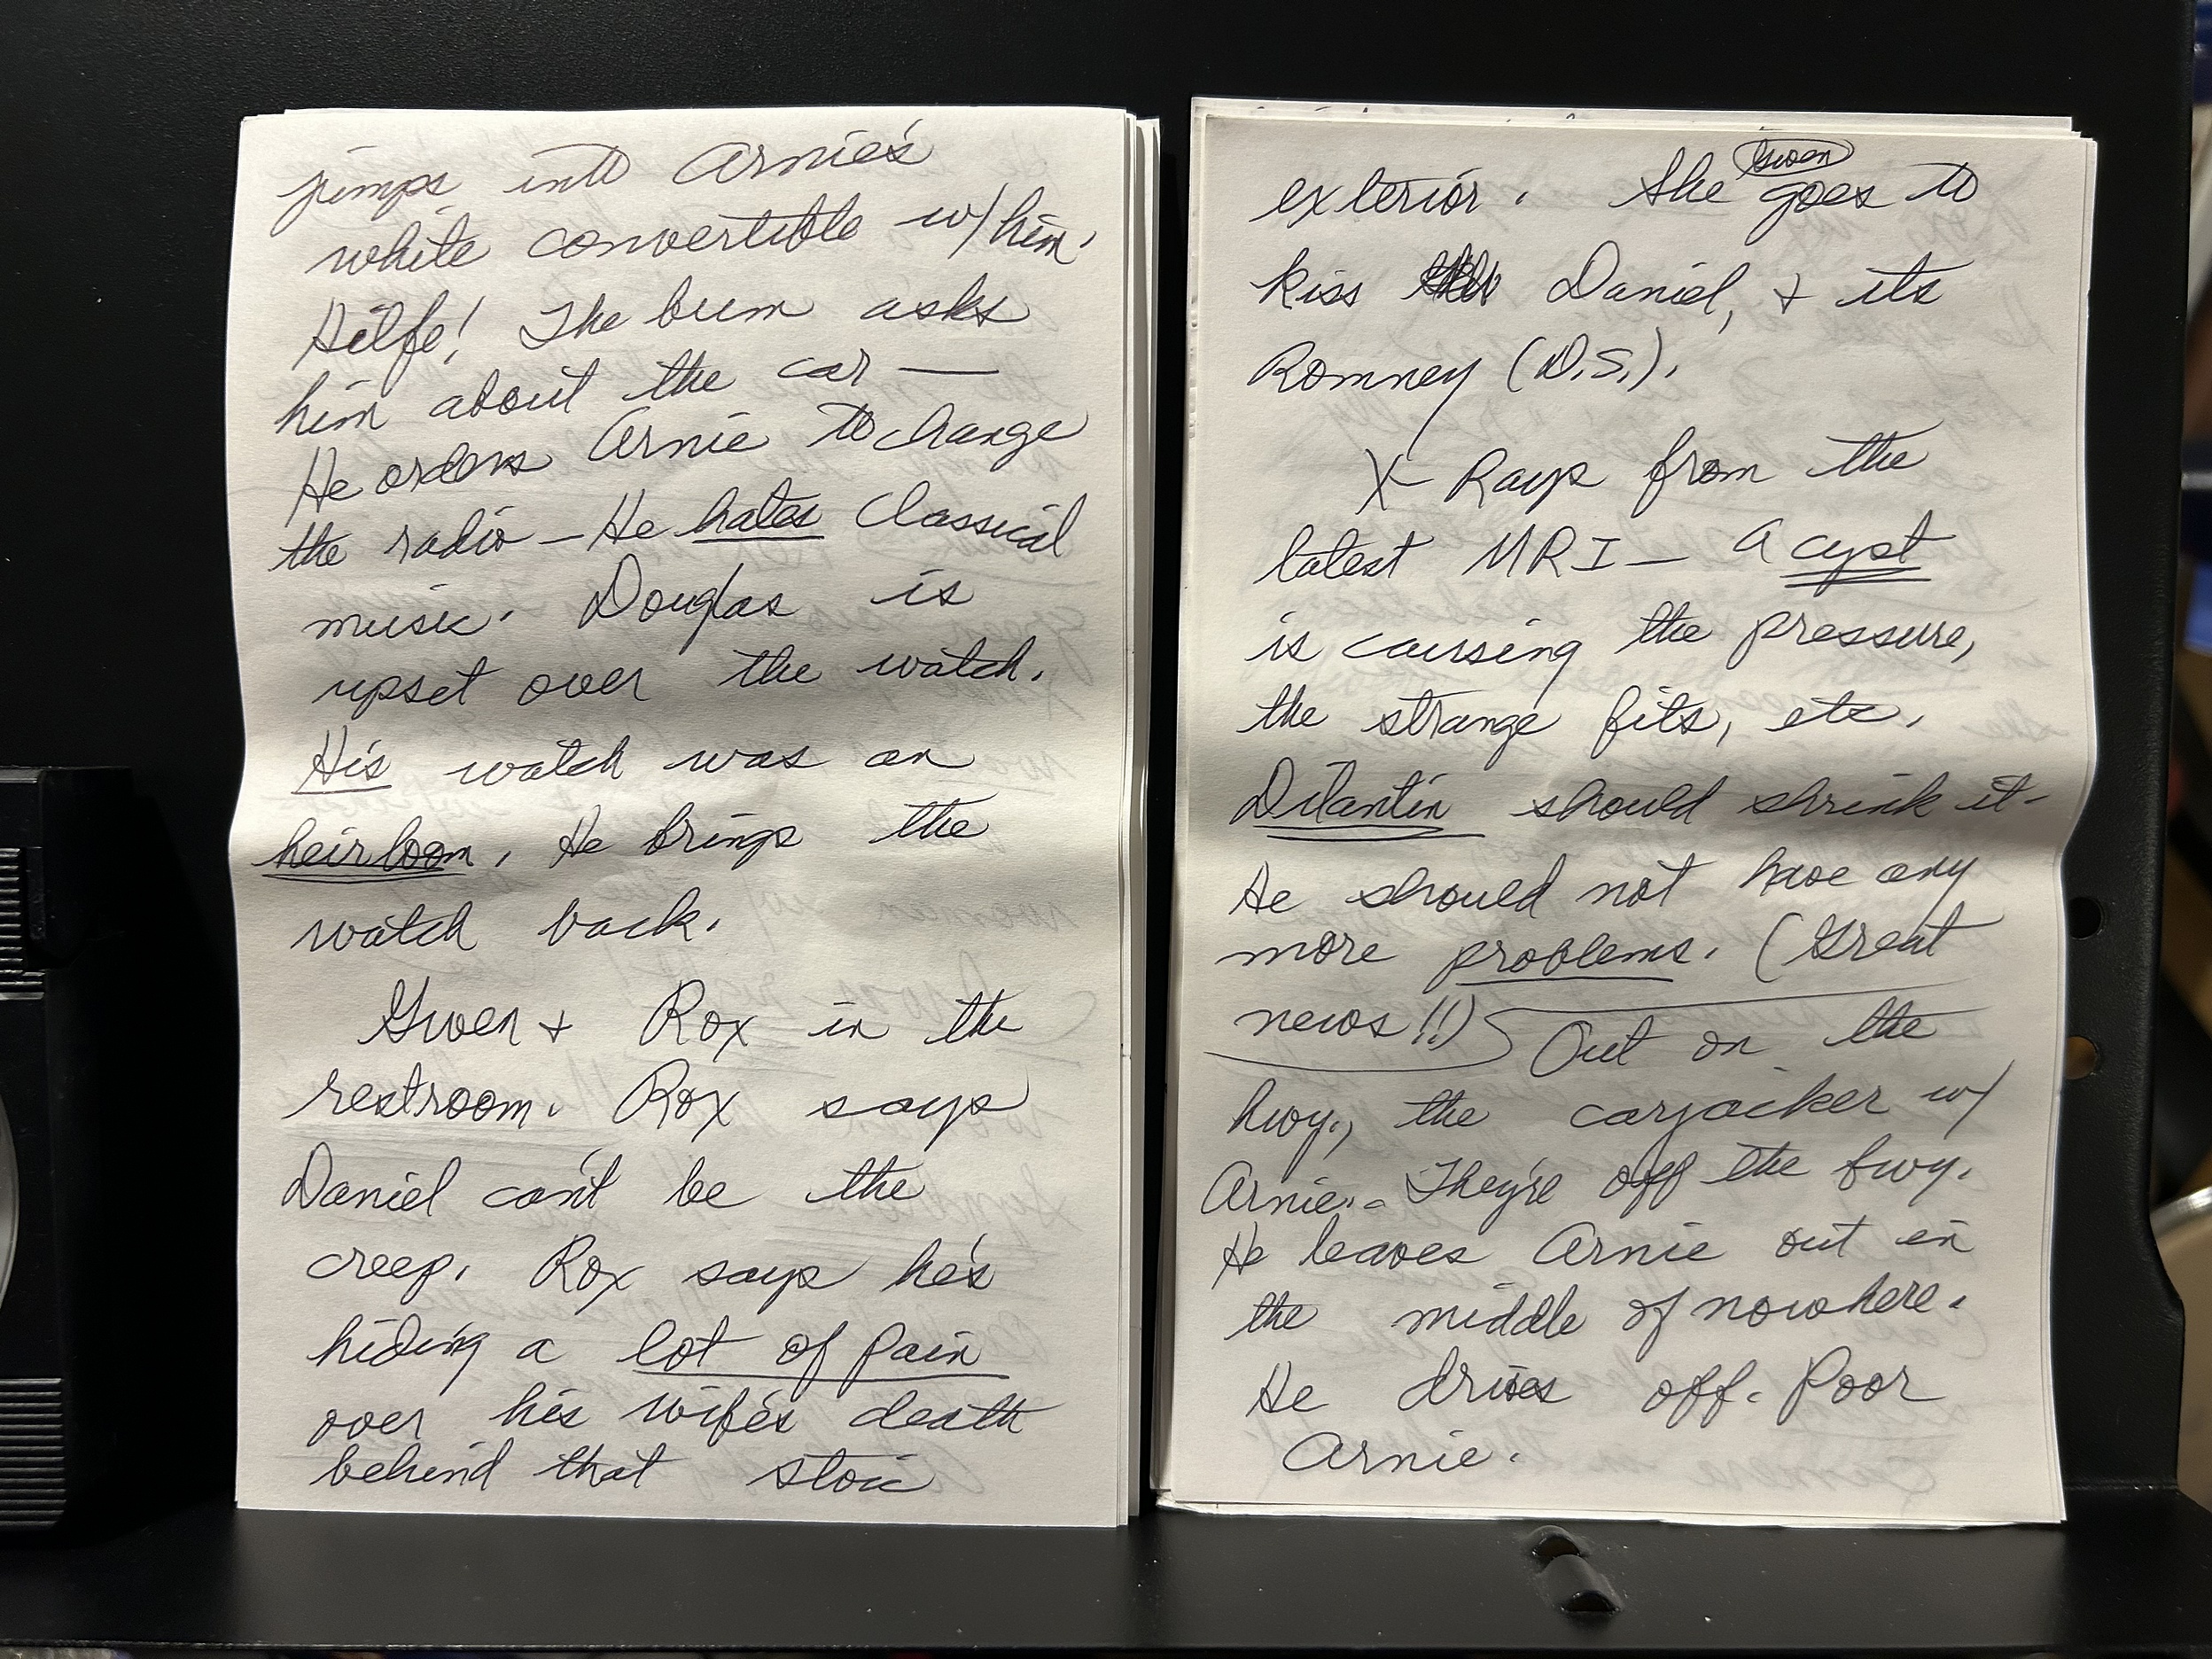 jumps into Arnie's
white convertible w/him.
Hilfe! The bum asks
him about the car —
He orders Arnie to change
the radio – He hates classical
music. Douglas is
upset over the watch.
His watch was an
heirloom. He brings the
watch back.
Gwen + Rox in the
restroom. Rox says
Daniel can't be the
creep. Rox says he's
hiding a lot of pain
over his wife's death
behind that stoic
exterior. She (Gwen) goes to
kiss Daniel, + its
Romney (D.S.).
X-Rays from the
latest MRI – A cyst
is causing the pressure,
the strange fits, etc.
Dilantin should shrink it-
He should not have any
more problems. (Great
news!!) Out on the
hwy., the carjacker w/
Arnie. - They're off the fwy.
He leaves Arnie out in
the middle of nowhere.
He drives off. Poor
Arnie.